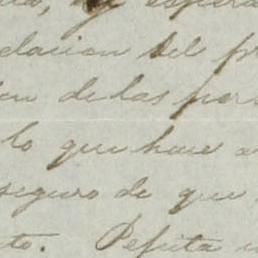 espera
elacion del pr
on de las per
lo que hace a
seguro de que
to. Pepita